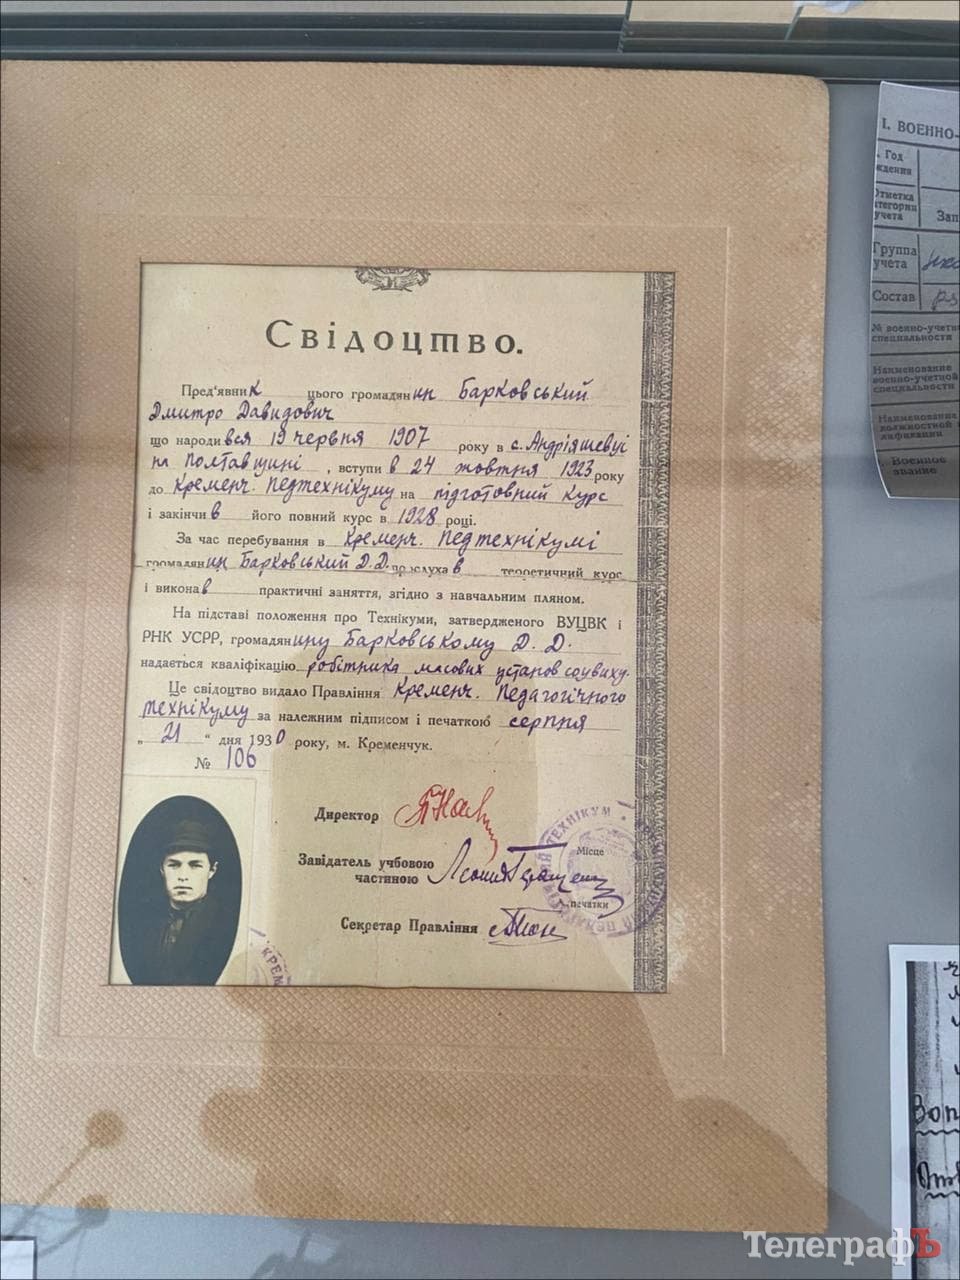 Свідоцтво.
Пред'явник цього громадянин Барковський
Дмитро Давидович
що народився 19 червня 1907 року в с. Андріяшевці
на Полтавщині, вступив 24 жовтня 1923 року
до Кременч. Педтехнікуму на підготовний курс
і закінчив його повний курс в 1928 році.
За час перебування в Кременч. Педтехнікумі
громадянин Барковський Д.Д. прослухав теоретичний курс
і виконав практичні заняття, згідно з навчальним пляном.
На підставі положення про Технікуми, затвердженого ВУЦВК і
РНК УСРР, громадянину Барковському Д. Д.
надається кваліфікацію робітника масових установ соцвиху.
Це свідоцтво видало Правління Кременч. Педагогічного
технікуму за належним підписом і печаткою серпня
„ 21 “ дня 1930 року, м. Кременчук.
№ 106
Директор
Завідатель учбовою
частиною
Місце
печатки
Секретар Правління
ТЕХНІКУМ
КРЕМ
I. ВОЕННО-
Год
ждения
Отметка
категории
учета
Зап
Группа
учета
Состав
№ военно-учетн
специальности
Наименование
военно-учетной
специальности
Наименование
должностной
лификации
Военное
звание
Воп
ТелеграфЪ